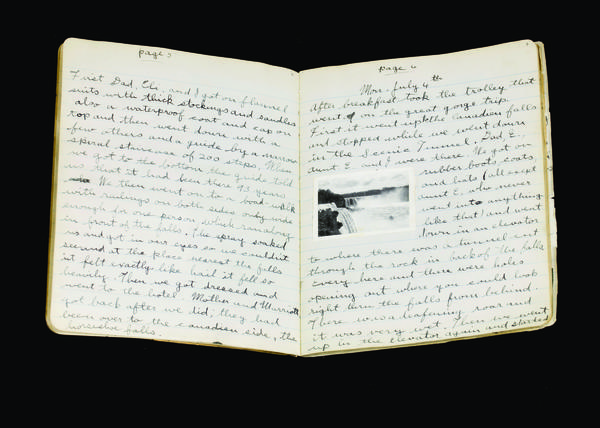 page 5
First Dad, Eli, and I got on flannel
suits with thick stockings and sandles
also a waterproof coat and cap on
top and then went down with a
few others and a guide by a narrow
spiral staircase of 200 steps. When
we got to the bottom the guide told
us that it had been there 93 years
We then went on to a bord walk
with railings on both sides only wide
enough for one person which ran along
in front of the falls. The spray soaked
us and got in our eyes so we couldn't
see and at the place nearest the falls
it felt exactly like hail it fell so
heavily. Then we got dressed and
went to the hotel. Mother and Marriott
got back after we did; they had
been over to the canadien side, the
horseshoe falls.
page 6
Mon. July 4th
After breakfast took the trolley that
went on the great gorge trip.
First it went up to the Canadien falls
and stopped while we went down
in the Scenic Tunnel. Dad, E.,
aunt E and I were there. We got on
rubber boots, coats,
and hats (all except
aunt E. who never
went into anything
like that) and went
down in an elevator
to where there was a tunnel cut
through the rock in back of the falls
Every here and there were holes
opening out where you could look
right thru the falls from behind.
There was a deafening roar and
it was very wet. Then we went
up in the elevator again and started